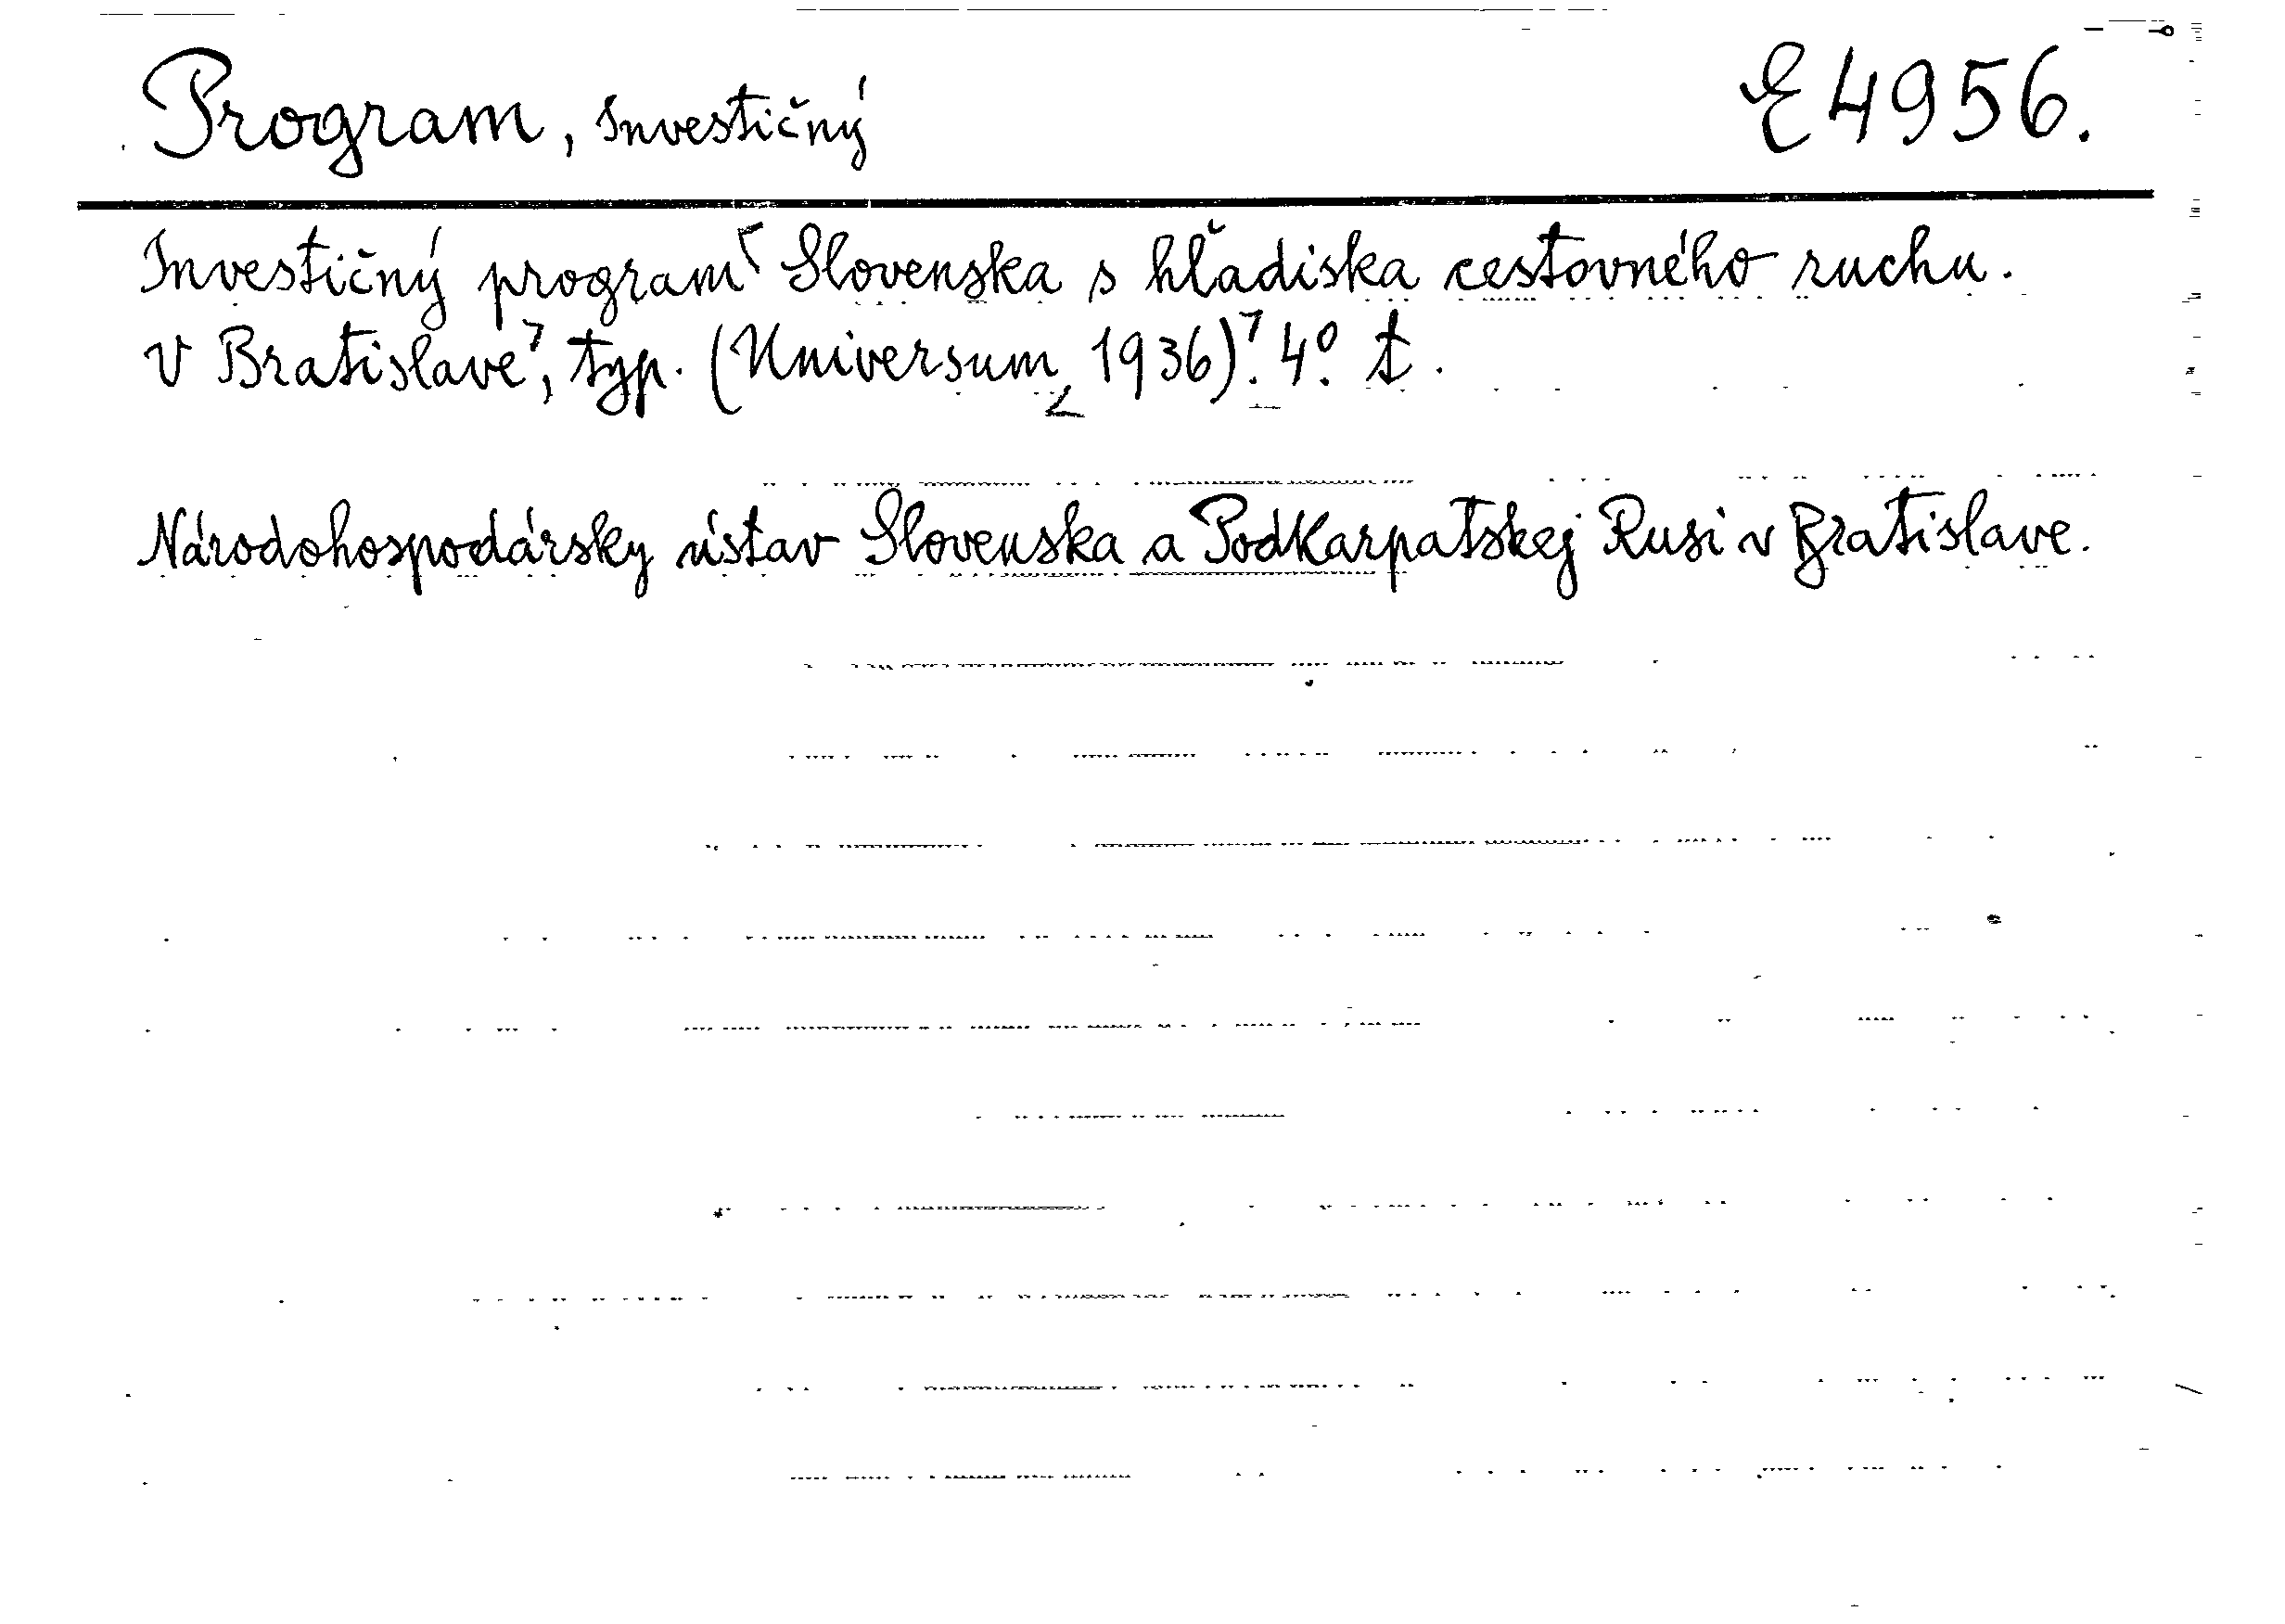 Program, Investičný
E 4956.
Investičný program Slovenska s hľadiska cestovného ruchu.
V Bratislave, typ. (Universum 1936). 4° t.
Národohospodársky ústav Slovenska a Podkarpatskej Rusi v Bratislave.